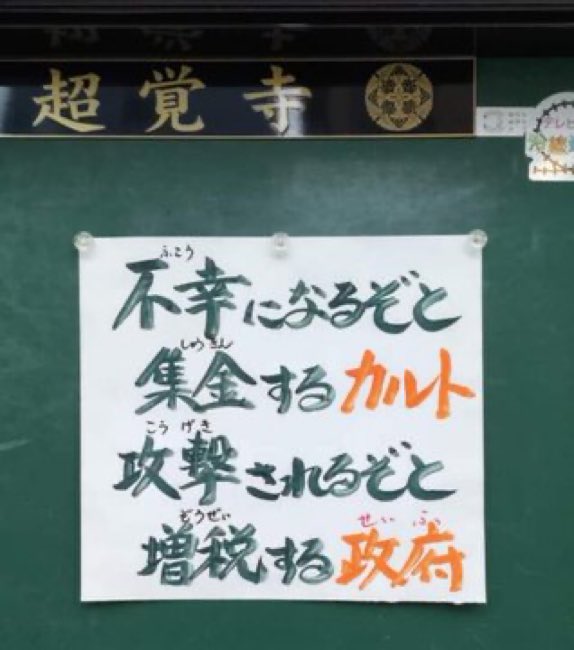 超覚寺
テレビ
ふこう
不幸になるぞと
しゅうきん
集金するカルト
こうげき
攻撃されるぞと
ぞうぜい
増税する政府
せいふ